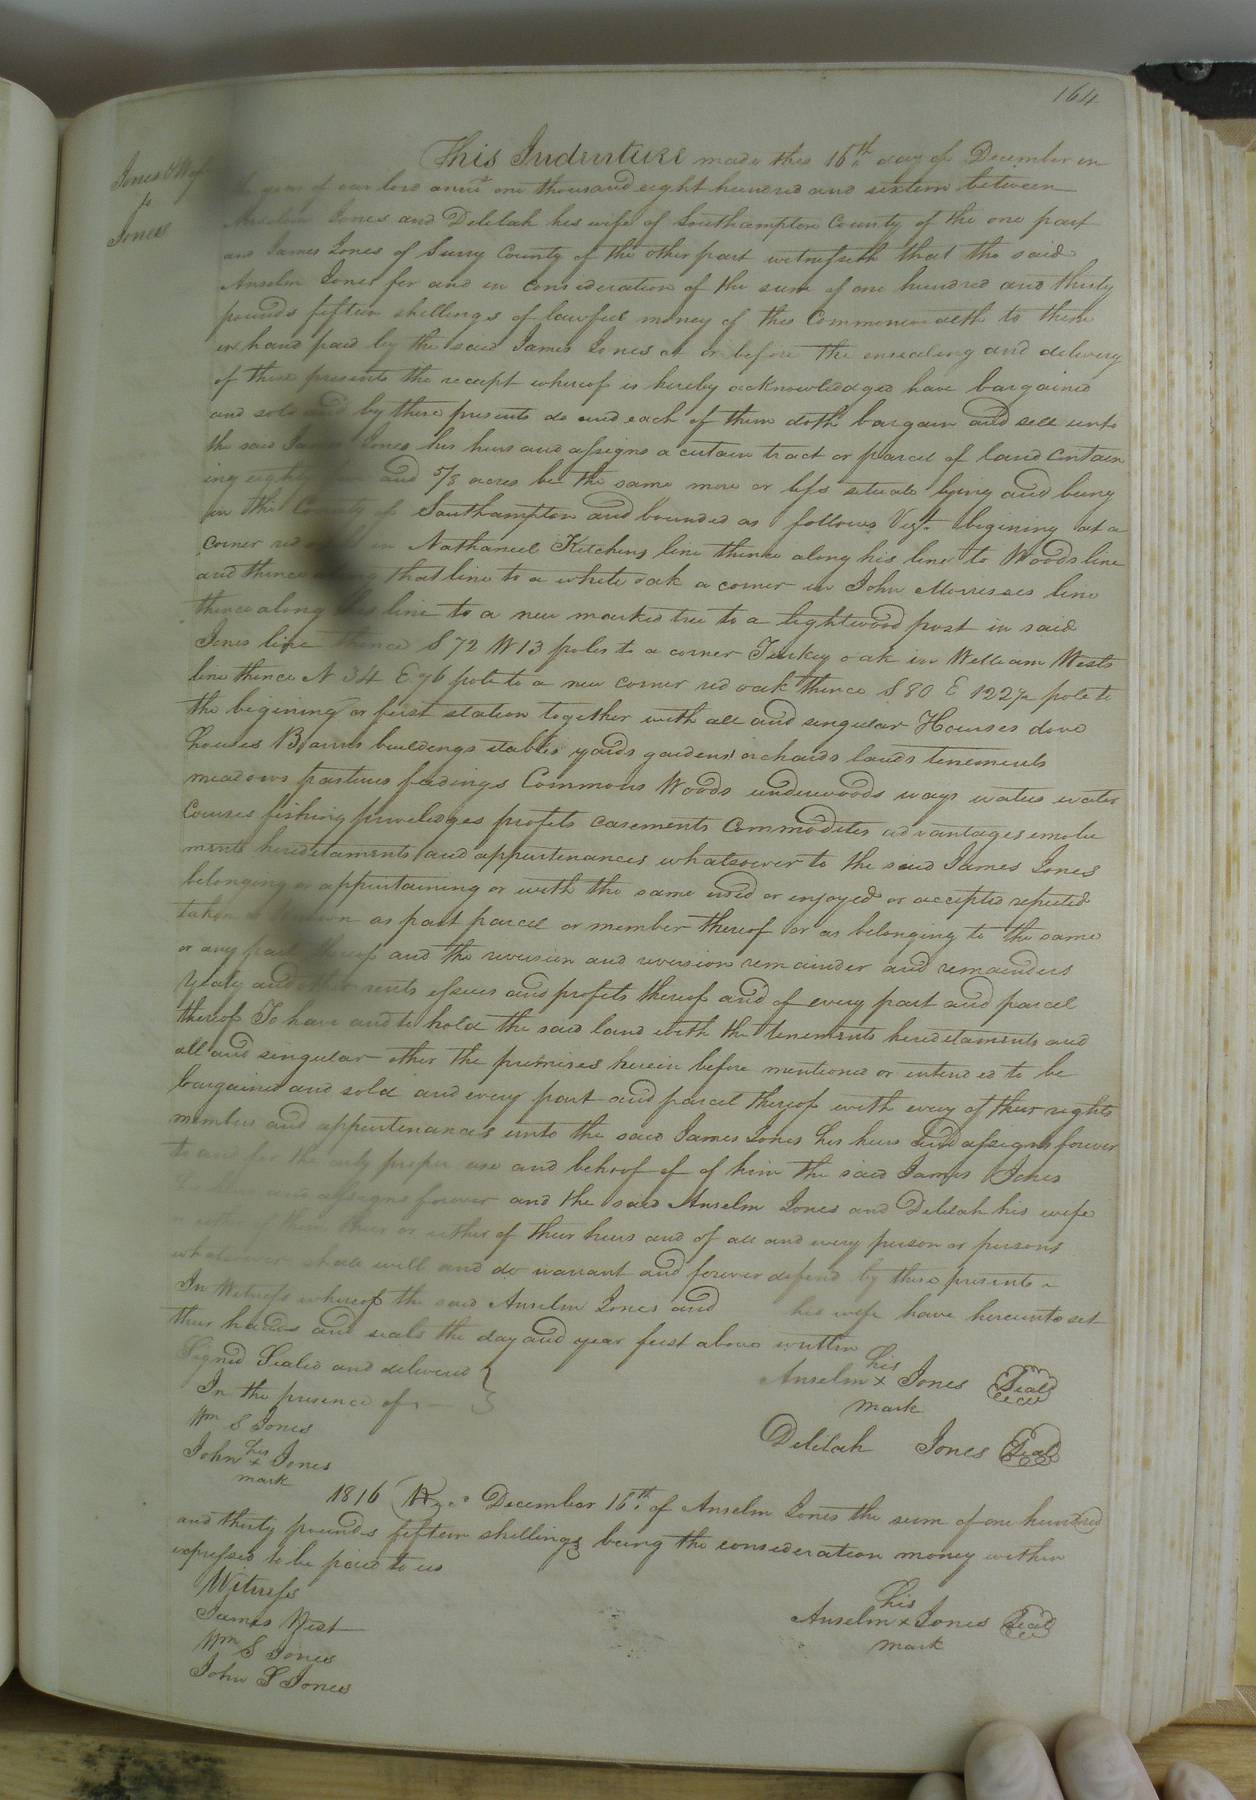 164
Jones & Wife
to
Jones
This Indenture made this 16th day of December in
the year of our lord one thousand eight hundred and sixteen between
Anselm Jones and Delilah his wife of Southampton County of the one part
and James Jones of Surry County of the other part witnesseth that the said
Anselm Jones for and in Consideration of the sum of one hundred and thirty
pounds fifteen shillings of lawfull money of this Commonwealth to them
in hand paid by the said James Jones at or before the ensealing and delivery
of these presents the receipt whereof is hereby acknowledged have bargained
and sold and by these presents do and each of them doth bargain and sell unto
the said James Jones his heirs and assigns a certain tract or parcel of land Contain
ing eighty and 5/8 acres be the same more or less situate lying and being
in the County of Southampton and bounded as follows Vizt. begining at a
corner red in Nathaniel Kitchens line thence along his line to Woods line
and thence along that line to a white oak a corner in John Morrisses line
thence along his line to a new marked tree to a lightwood post in said
Jones line thence S 72 W 13 poles to a corner Turkey oak in William Wests
line thence N 34 E 76 pole to a new corner red oak thence S 80 E 122½ pole to
the begining or first station together with all and singular Houses dove
houses Barns buildings stables yards gardens orchards lands tenements
meadows pastures feedings Commons Woods underwoods ways waters water
Courses fishing priveledges profits easements Commodites advantages emolu
ments hereditaments and appurtenances whatsoever to the said James Jones
belonging or appurtaining or with the same used or enjoyed or accepted reputed
taken or known as part parcel or member thereof or as belonging to the same
or any part thereof and the reversion and reversion remainder and remainders
Yealy and other rents issues and profits thereof and of every part and parcel
thereof To have and to hold the said land with the tenements hereditaments and
all and singular other the premises herein before mentioned or intended to be
bargained and sold and every part and parcel thereof with every of their rights
members and appurtenances unto the said James Jones his heirs and assigns forever
to and for the only proper use and behoof of of him the said James Jones
his heirs and assigns forever and the said Anselm Jones and Delilah his wife
either of them their or either of their heirs and of all and every person or persons
whatsoever shall will and do warrant and forever defend by these presents
In Witness whereof the said Anselm Jones and his wife have hereunto set
their hands and seals the day and year first above written
Signed Sealed and delivered }
In the presence of
Wm S Jones
John his x mark Jones
Anselm his x mark Jones Seal
Delilah Jones Seal
1816 December 16th. of Anselm Jones the sum of one hundred
and thirty pounds fifteen shillings being the consideration money within
expressed to be paid to us
Witness
James West
Wm S Jones
John S Jones
Anselm his x mark Jones Seal